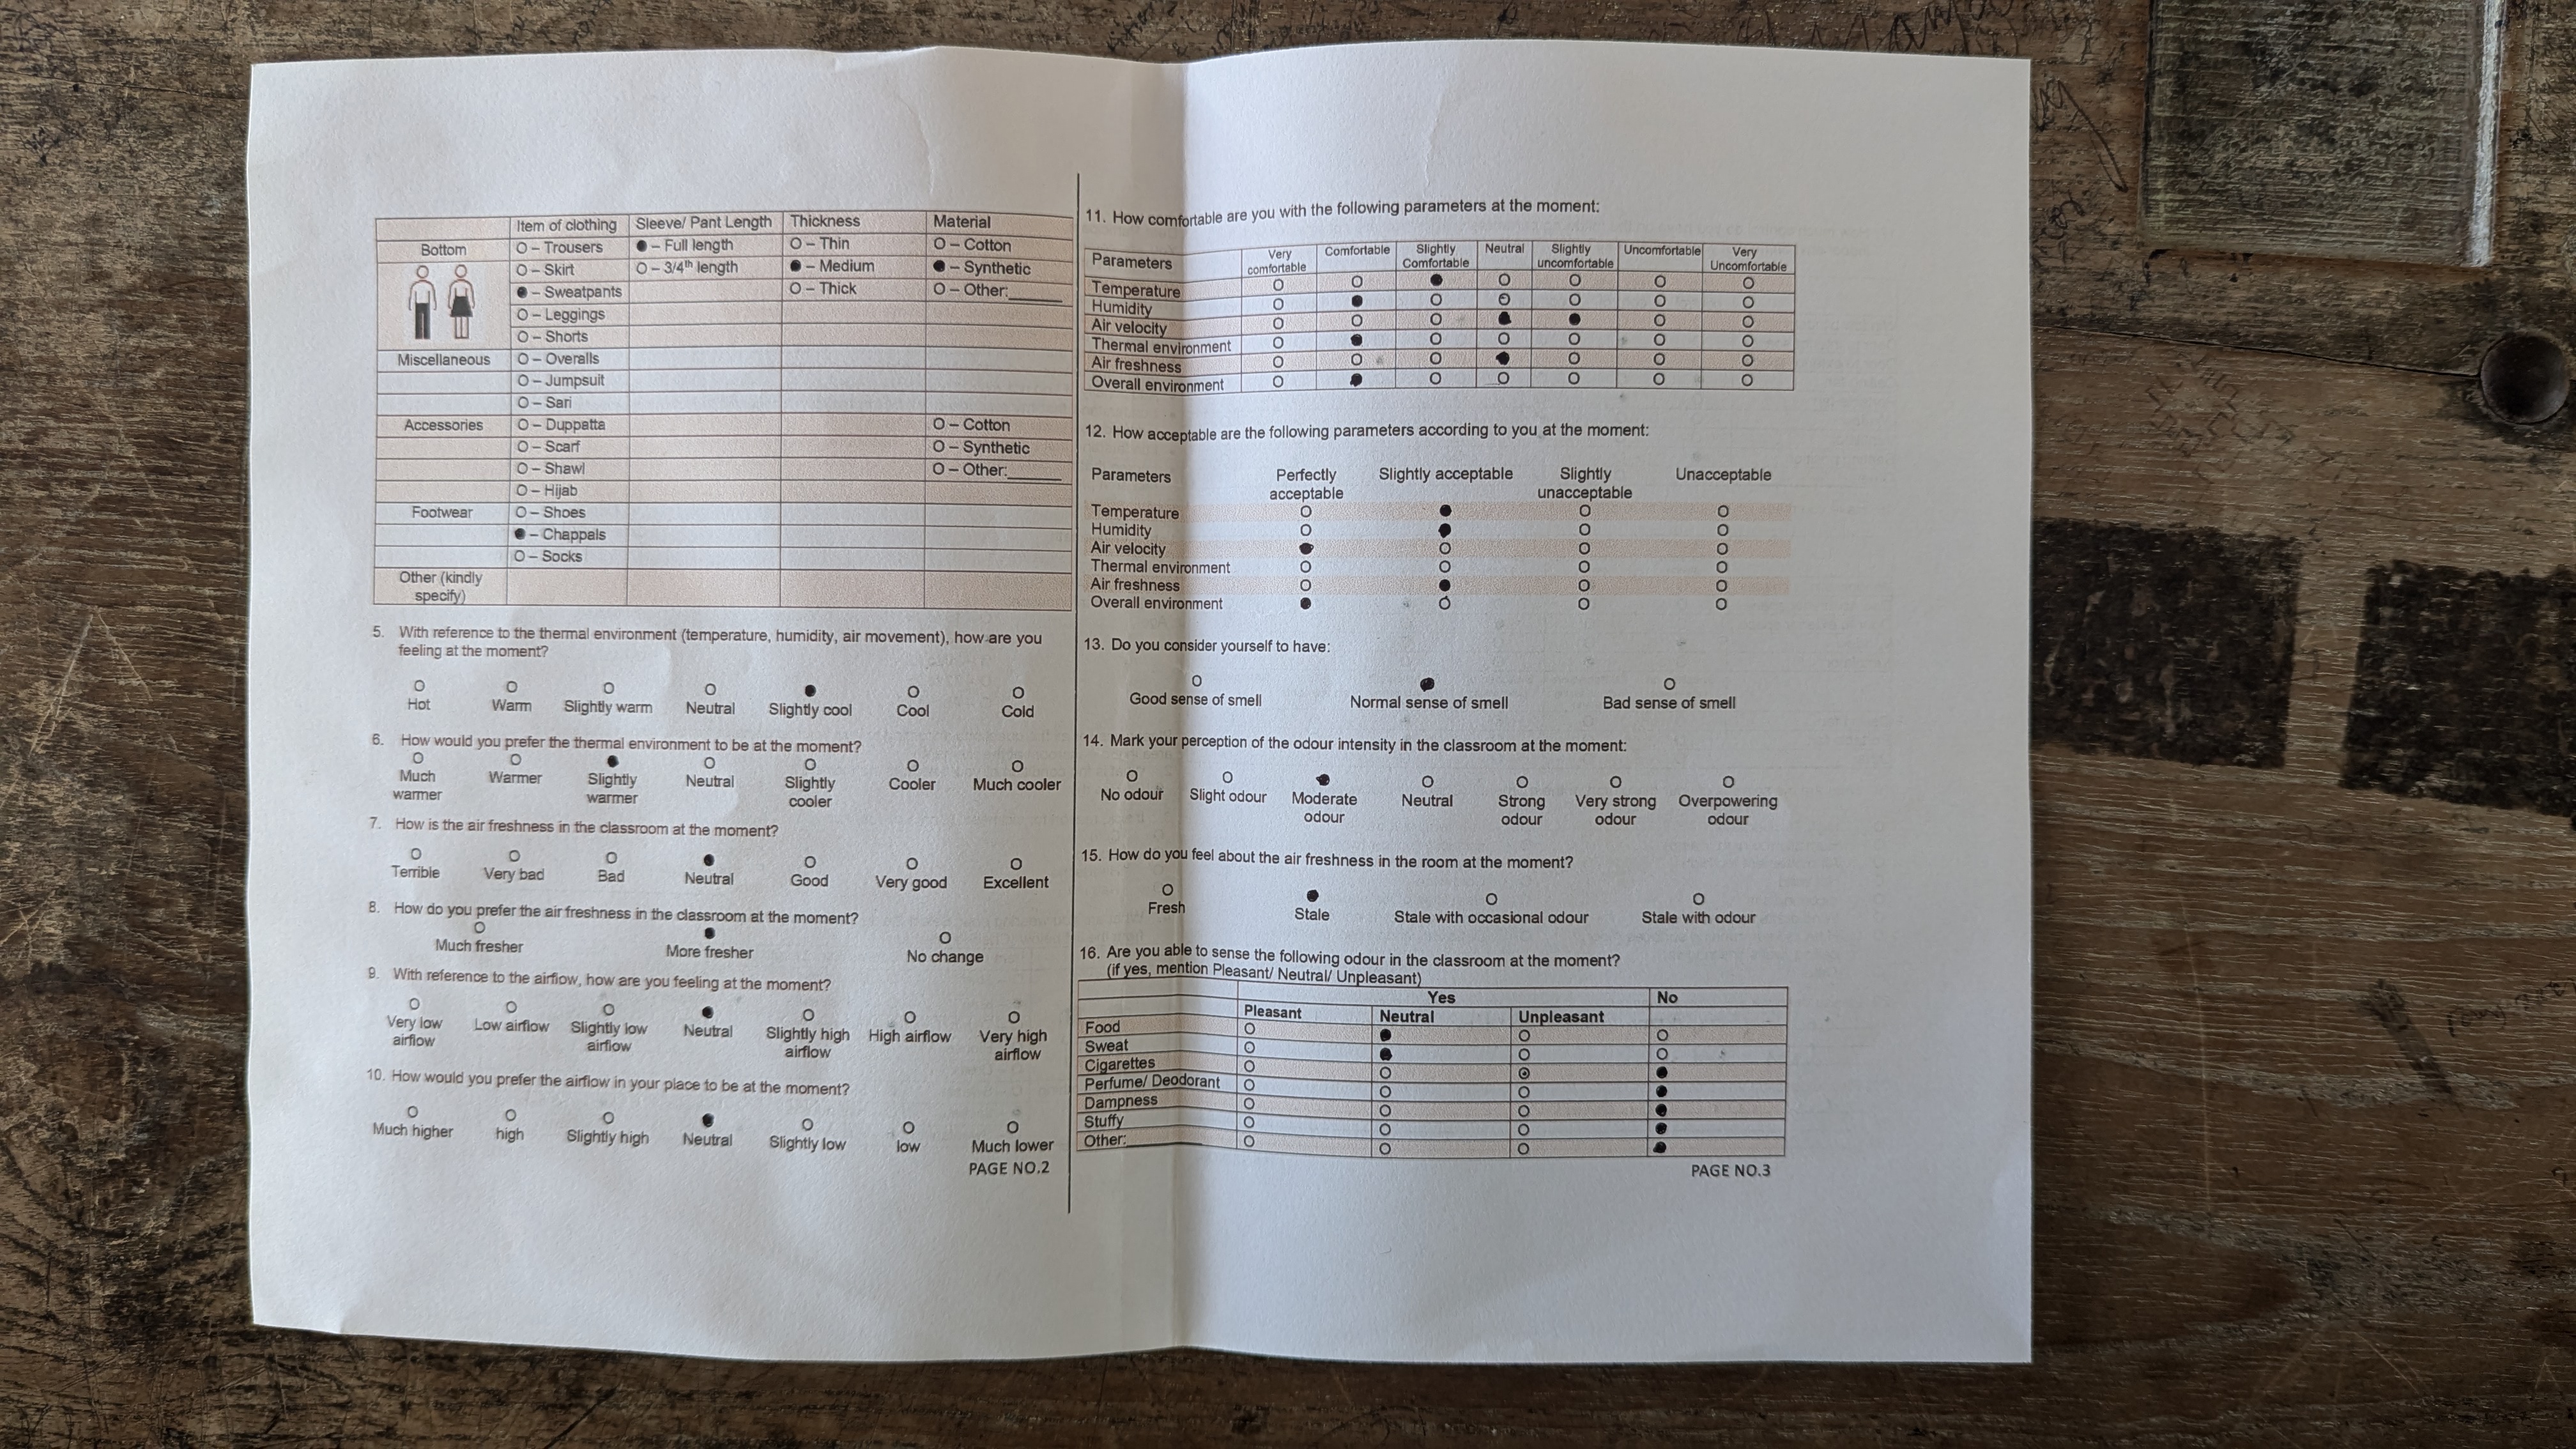 Item of clothing Sleeve/ Pant Length Thickness Material
Bottom O – Trousers ● – Full length O – Thin O – Cotton
O – Skirt O – 3/4th length ● – Medium ● – Synthetic
● – Sweatpants O – Thick O – Other:______
O – Leggings
O – Shorts
Miscellaneous O – Overalls
O – Jumpsuit
O – Sari
Accessories O – Duppatta O – Cotton
O – Scarf O – Synthetic
O – Shawl O – Other:______
O – Hijab
Footwear O – Shoes
● – Chappals
O – Socks
Other (kindly
specify)
5. With reference to the thermal environment (temperature, humidity, air movement), how are you
feeling at the moment?
O O O O ● O O
Hot Warm Slightly warm Neutral Slightly cool Cool Cold
6. How would you prefer the thermal environment to be at the moment?
O O ● O O O O
Much Warmer Slightly Neutral Slightly Cooler Much cooler
warmer warmer cooler
7. How is the air freshness in the classroom at the moment?
O O O ● O O O
Terrible Very bad Bad Neutral Good Very good Excellent
8. How do you prefer the air freshness in the classroom at the moment?
O ● O
Much fresher More fresher No change
9. With reference to the airflow, how are you feeling at the moment?
O O O ● O O O
Very low Low airflow Slightly low Neutral Slightly high High airflow Very high
airflow airflow airflow airflow
10. How would you prefer the airflow in your place to be at the moment?
O O O ● O O O
Much higher high Slightly high Neutral Slightly low low Much lower
PAGE NO.2
11. How comfortable are you with the following parameters at the moment:
Parameters Very Comfortable Slightly Neutral Slightly Uncomfortable Very
comfortable Comfortable uncomfortable Uncomfortable
Temperature O O ● O O O O
Humidity O ● O O O O O
Air velocity O O O ● ● O O
Thermal environment O ● O O O O O
Air freshness O O O ● O O O
Overall environment O ● O O O O O
12. How acceptable are the following parameters according to you at the moment:
Parameters Perfectly Slightly acceptable Slightly Unacceptable
acceptable unacceptable
Temperature O ● O O
Humidity O ● O O
Air velocity ● O O O
Thermal environment O O O O
Air freshness O ● O O
Overall environment ● O O O
13. Do you consider yourself to have:
O ● O
Good sense of smell Normal sense of smell Bad sense of smell
14. Mark your perception of the odour intensity in the classroom at the moment:
O O ● O O O O
No odour Slight odour Moderate Neutral Strong Very strong Overpowering
odour odour odour odour
15. How do you feel about the air freshness in the room at the moment?
O ● O O
Fresh Stale Stale with occasional odour Stale with odour
16. Are you able to sense the following odour in the classroom at the moment?
(if yes, mention Pleasant/ Neutral/ Unpleasant)
Yes No
Pleasant Neutral Unpleasant
Food O ● O O
Sweat O ● O O
Cigarettes O O ⊙ ●
Perfume/ Deodorant O O O ●
Dampness O O O ●
Stuffy O O O ●
Other:__________ O O O ●
PAGE NO.3